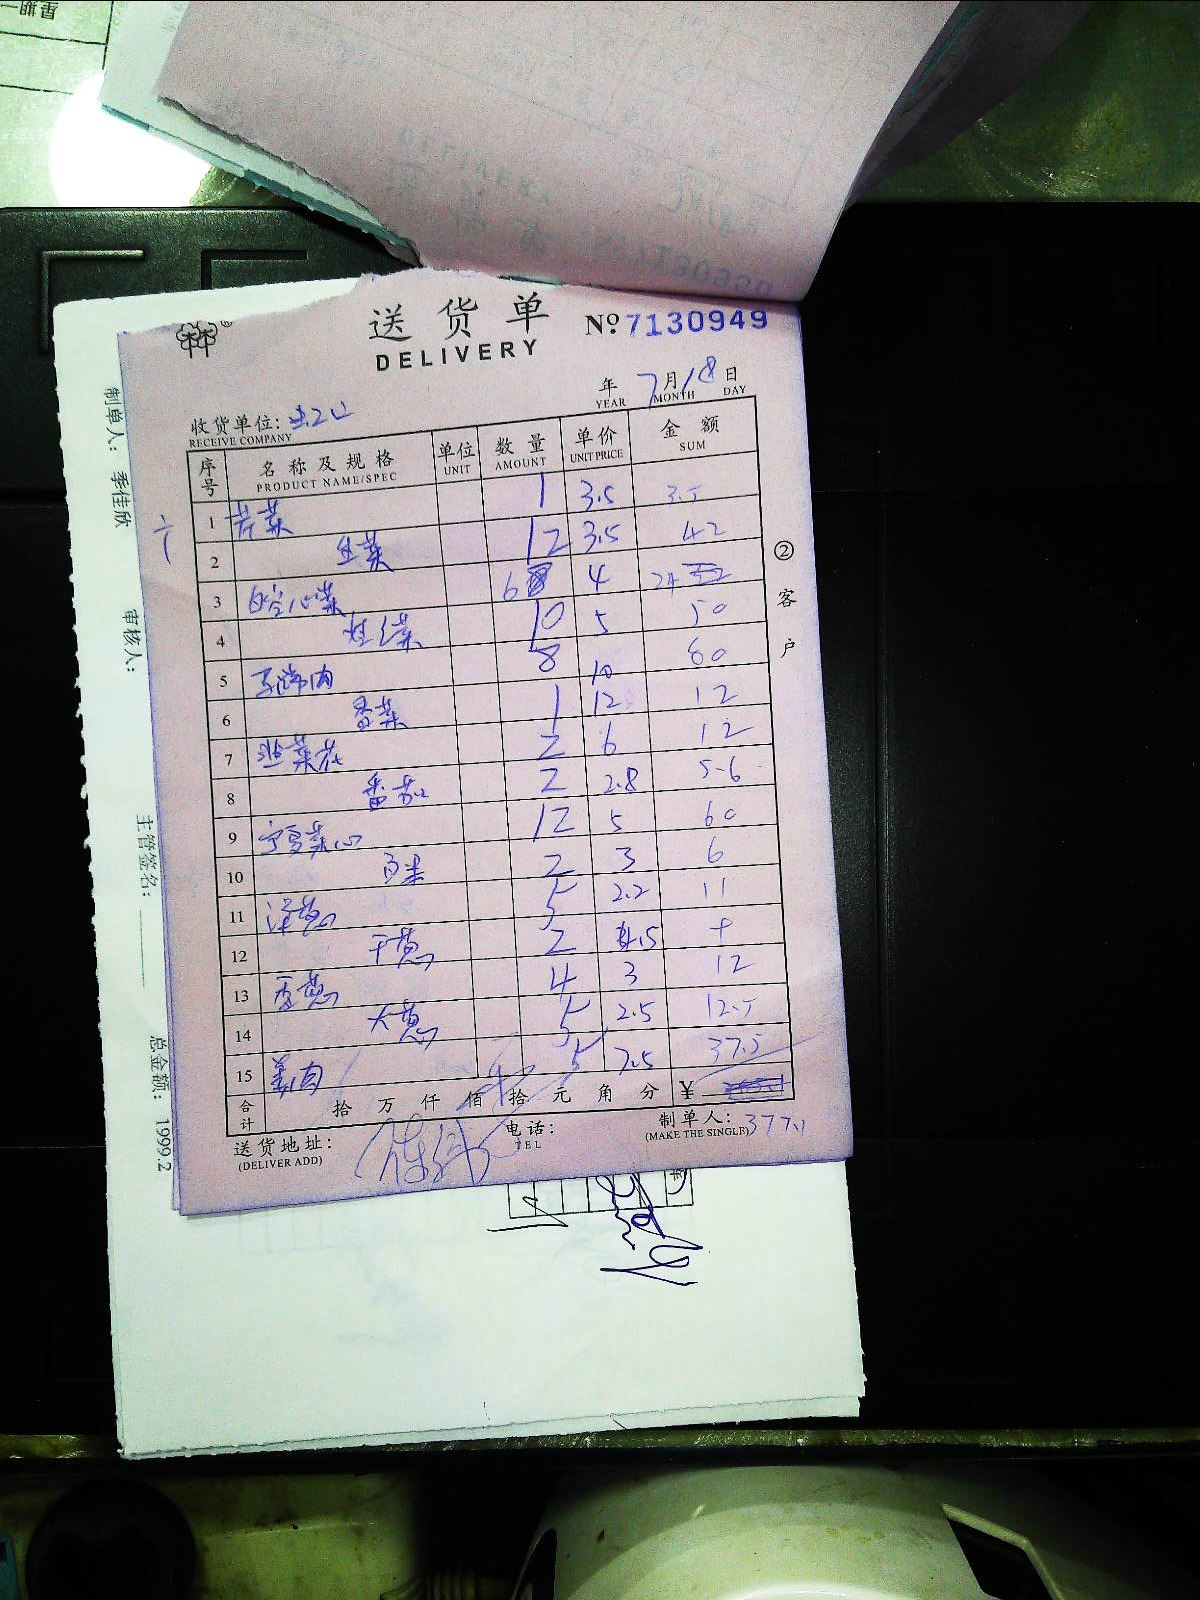 送货单
DELIVERY
Nº 7130949
年 7月18日
YEAR MONTH DAY
收货单位:
RECEIVE COMPANY
序号 名称及规格 单位 数量 单价 金额
PRODUCT NAME/SPEC UNIT AMOUNT UNIT PRICE SUM
1 芹菜 1 3.5 3.5
2 生菜 12 3.5 42
3 6 4 24
4 10 5 50
5 马蹄肉 8 10 80
6 香菜 1 12 12
7 韭菜花 2 6 12
8 番茄 2 2.8 5.6
9 宁夏菜心 12 5 60
10 2 3 6
11 洋葱 5 2.2 11
12 干葱 2 4.5 9
13 香葱 4 3 12
14 大葱 5 2.5 12.5
15 姜肉 5 7.5 37.5
合计 拾 万 仟 佰 拾 元 角 分 ¥
377.1
送货地址:
(DELIVER ADD)
电话:
TEL
制单人:
(MAKE THE SINGLE)
② 客户
制单人: 季佳欣
审核人:
主管签名:
总金额: 1999.2
星期一